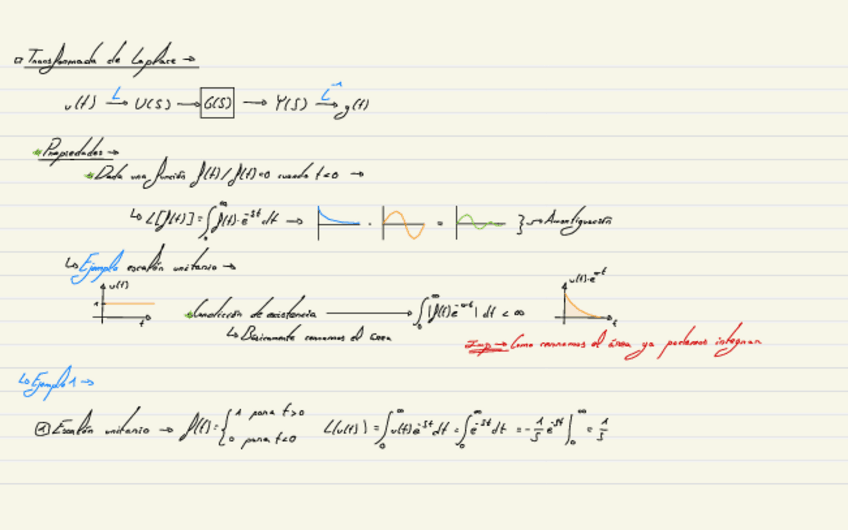 Transformada de Laplace →
u(t) L→ U(S) → G(S) → Y(S) L⁻¹→ y(t)
* Propiedades →
* Dada una función f(t) / f(t)=0 cuando t<0 →
↳ L[f(t)] = ∫₀^∞ f(t)·e^-st dt → · = } → Amortiguación
↳ Ejemplo escalón unitario →
u(t) 1 t
* Condición de existencia → ∫₀^∞ |f(t)e^-σt| dt < ∞
u(t)·e^-σt t
↳ Básicamente cerramos el área
Imp → Como cerramos el área ya podemos integrar
↳ Ejemplo 1 →
① Escalón unitario → f(t) = { 1 para t>0 0 para t<0 L(u(t)) = ∫₀^∞ u(t)e^-st dt = ∫₀^∞ e^-st dt = -1/s e^-st |₀^∞ = 1/s